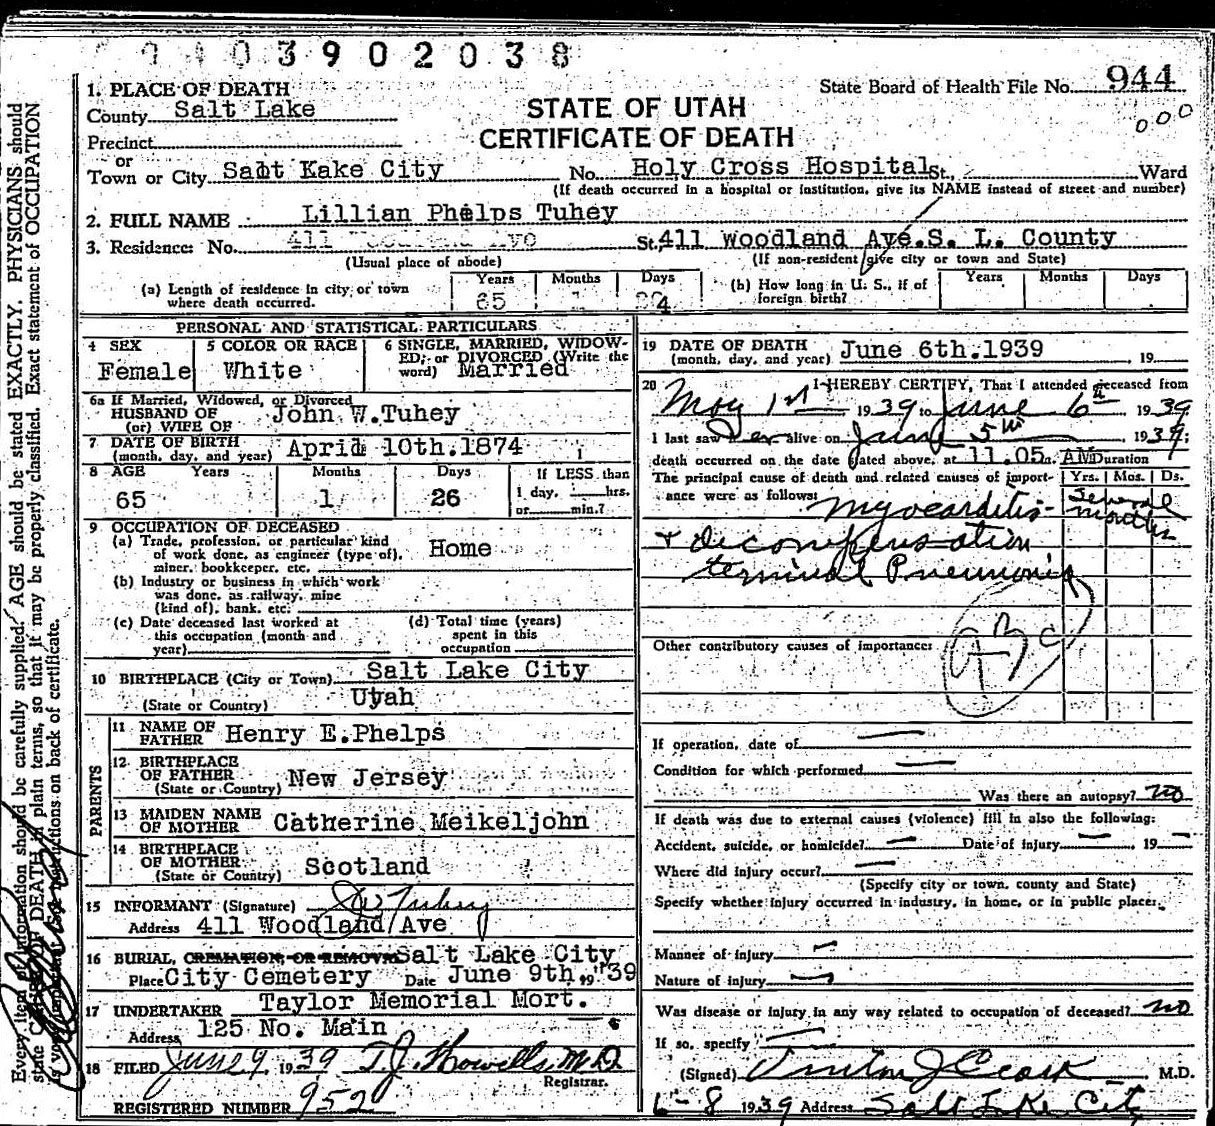 0403902038
State Board of Health File No. 944
000
1. PLACE OF DEATH
County Salt Lake
STATE OF UTAH
CERTIFICATE OF DEATH
Precinct
or
Town or City Samt Kake City No. Holy Cross Hospital St., Ward
(If death occurred in a hospital or institution, give its NAME instead of street and number)
2. FULL NAME Lillian Phelps Tuhey
3. Residence: No. 411 Woodland Ave St. 411 Woodland Ave.S. L. County
(Usual place of abode) (If non-resident give city or town and State)
(a) Length of residence in city or town where death occurred. Years 65 Months 1 Days
(b) How long in U. S., if of foreign birth? Years Months Days
PERSONAL AND STATISTICAL PARTICULARS
4 SEX Female
5 COLOR OR RACE White
6 SINGLE, MARRIED, WIDOWED, or DIVORCED (Write the word) Married
6a If Married, Widowed, or Divorced
HUSBAND OF
(or) WIFE OF John W.Tuhey
7 DATE OF BIRTH
(month, day, and year) April 10th.1874
8 AGE Years Months Days If LESS than
65 1 26 1 day, hrs.
or min.?
9 OCCUPATION OF DECEASED
(a) Trade, profession, or particular kind
of work done, as engineer (type of), Home
miner, bookkeeper, etc.
(b) Industry or business in which work
was done, as railway, mine
(kind of), bank, etc.
(c) Date deceased last worked at
this occupation (month and
year)
(d) Total time (years)
spent in this
occupation
10 BIRTHPLACE (City or Town) Salt Lake City
(State or Country) Utah
PARENTS
11 NAME OF
FATHER Henry E.Phelps
12 BIRTHPLACE
OF FATHER New Jersey
(State or Country)
13 MAIDEN NAME
OF MOTHER Catherine Meikeljohn
14 BIRTHPLACE
OF MOTHER Scotland
(State or Country)
15 INFORMANT (Signature) JW Tuhey
Address 411 Woodland Ave
16 BURIAL, CREMATION, OR REMOVAL Salt Lake City
Place City Cemetery Date June 9th., 19 "39
17 UNDERTAKER Taylor Memorial Mort.
Address 125 No. Main
18 FILED June 9 1939 T.J. Howells, M.D.
Registrar.
REGISTERED NUMBER 952
19 DATE OF DEATH
(month, day, and year) June 6th.1939, 19
20 I HEREBY CERTIFY, That I attended deceased from
May 1st 1939 to June 6th 1939
I last saw her alive on June 5th, 1939;
death occurred on the date stated above, at 11.05 m. AM Duration
The principal cause of death and related causes of import- Yrs. Mos. Ds.
ance were as follows: Myocarditis - Several months
+ decompensation
terminal Pneumonia
93 c
Other contributory causes of importance:
If operation, date of —
Condition for which performed —
Was there an autopsy? no
If death was due to external causes (violence) fill in also the following:
Accident, suicide, or homicide? — Date of injury —, 19 —
Where did injury occur? —
(Specify city or town, county and State)
Specify whether injury occurred in industry, in home, or in public place:
Manner of injury —
Nature of injury —
Was disease or injury in any way related to occupation of deceased? no
If so, specify —
(Signed) M.D.
6-8 1939 Address Salt Lake City
Every item of information should be carefully supplied. AGE should be stated EXACTLY. PHYSICIANS should
state CAUSE OF DEATH in plain terms, so that it may be properly classified. Exact statement of OCCUPATION
is very important. See instructions on back of certificate.